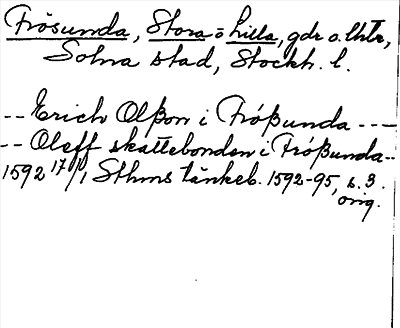 Frösunda, Stora o Lilla, gdr o. lht,
Solna stad, Stockh. l.
-- Erich Olßon i Fróßunda ---
-- Oleff skattebonden i Fróßunda --
1592 17/1, Sthms tänkeb. 1592-95, s. 3.
orig.